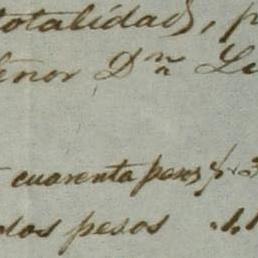 totalidad, p
eñor Dn Lu
cuarenta pesos
dos pesos